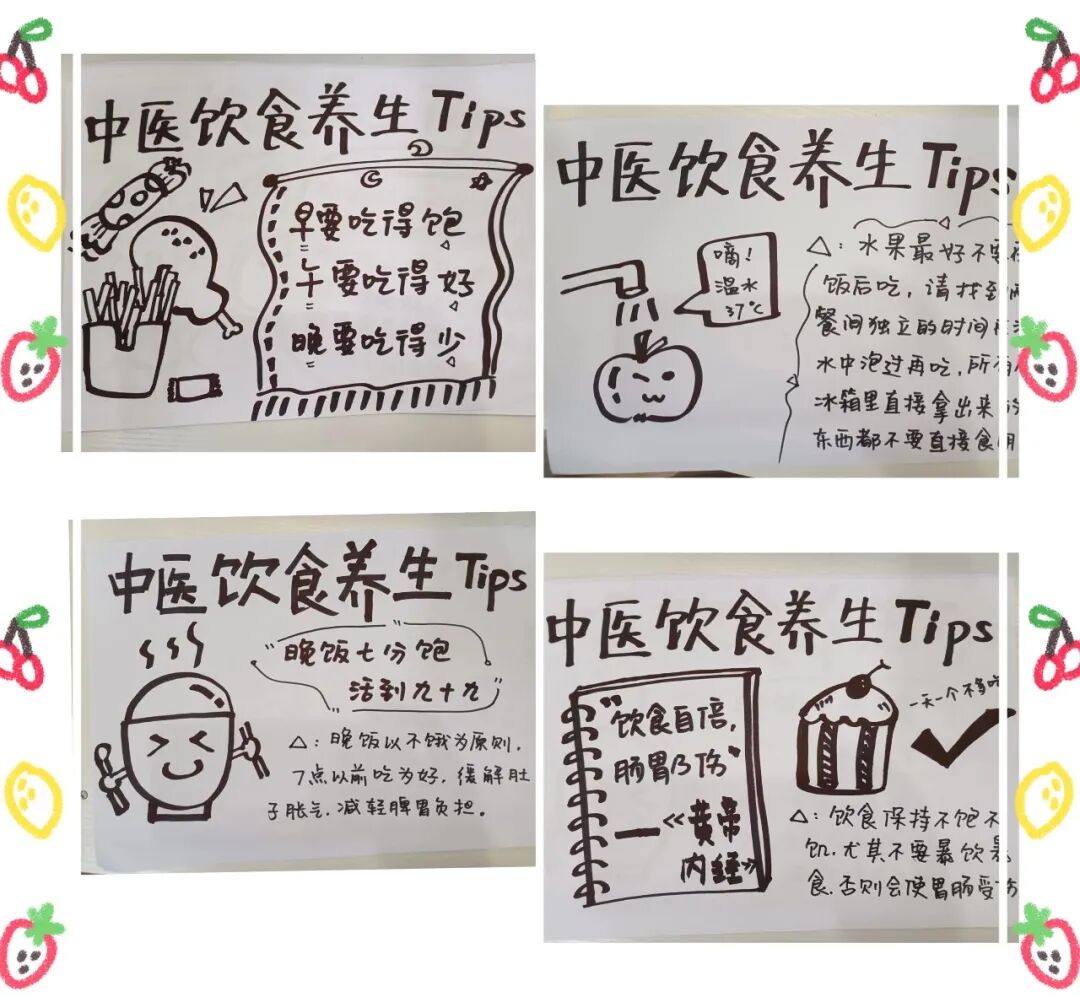 中医饮食养生Tips
早要吃得饱
午要吃得好
晚要吃得少
中医饮食养生Tips
嘀！
温水
37℃
△：水果最好不要
饭后吃，请找到
餐间独立的时间
水中泡过再吃，所有
冰箱里直接拿出来的
东西都不要直接食用
中医饮食养生Tips
晚饭七分饱
活到九十九
△：晚饭以不饿为原则，
7点以前吃为好，缓解肚
子胀气，减轻脾胃负担。
中医饮食养生Tips
"饮食自倍，
肠胃乃伤"
—《黄帝
内经》
一天一个不够吃
△：饮食保持不饱不
饥，尤其不要暴饮暴
食，否则会使胃肠受伤